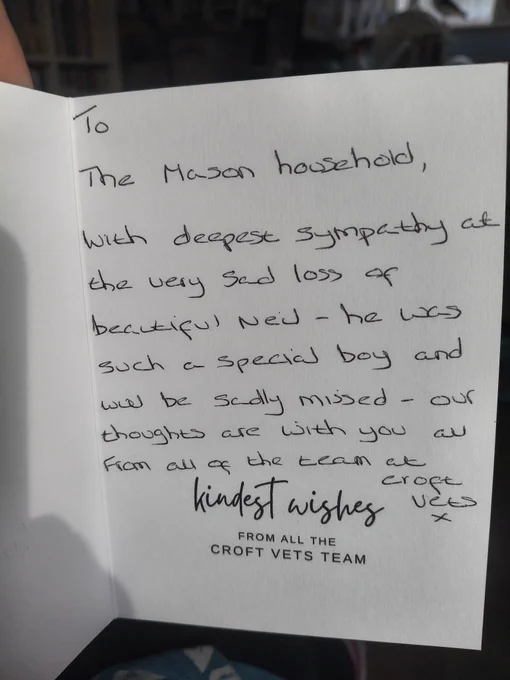 To
The Mason household,
With deepest sympathy at
the very sad loss of
beautiful Neil – he was
such a special boy and
will be sadly missed – our
thoughts are with you all
From all of the team at
croft
vets
x
kindest wishes
FROM ALL THE
CROFT VETS TEAM